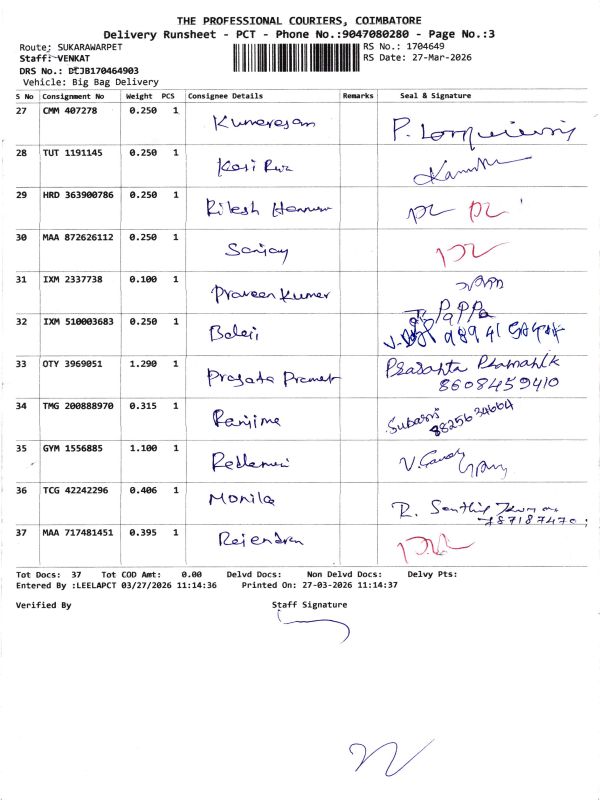 THE PROFESSIONAL COURIERS, COIMBATORE
Delivery Runsheet - PCT - Phone No.:9047080280 - Page No.:3
Route: SUKARAWARPET RS No.: 1704649
Staff: VENKAT RS Date: 27-Mar-2026
DRS No.: DIJB170464903
Vehicle: Big Bag Delivery
S No Consignment No Weight PCS Consignee Details Remarks Seal & Signature
27 CMM 407278 0.250 1 Kumaresan
28 TUT 1191145 0.250 1
29 HRD 363900786 0.250 1 Ritesh
30 MAA 872626112 0.250 1 Sanjay
31 IXM 2337738 0.100 1 Praveen Kumar
32 IXM 510003683 0.250 1 Balaji PaPPa
33 OTY 3969051 1.290 1 8608459410
34 TMG 200888970 0.315 1 Ranjima
35 GYM 1556885 1.100 1
36 TCG 42242296 0.406 1 Monila R.
37 MAA 717481451 0.395 1 Rajendran
Tot Docs: 37 Tot COD Amt: 0.00 Delvd Docs: Non Delvd Docs: Delvy Pts:
Entered By :LEELAPCT 03/27/2026 11:14:36 Printed On: 27-03-2026 11:14:37
Verified By Staff Signature